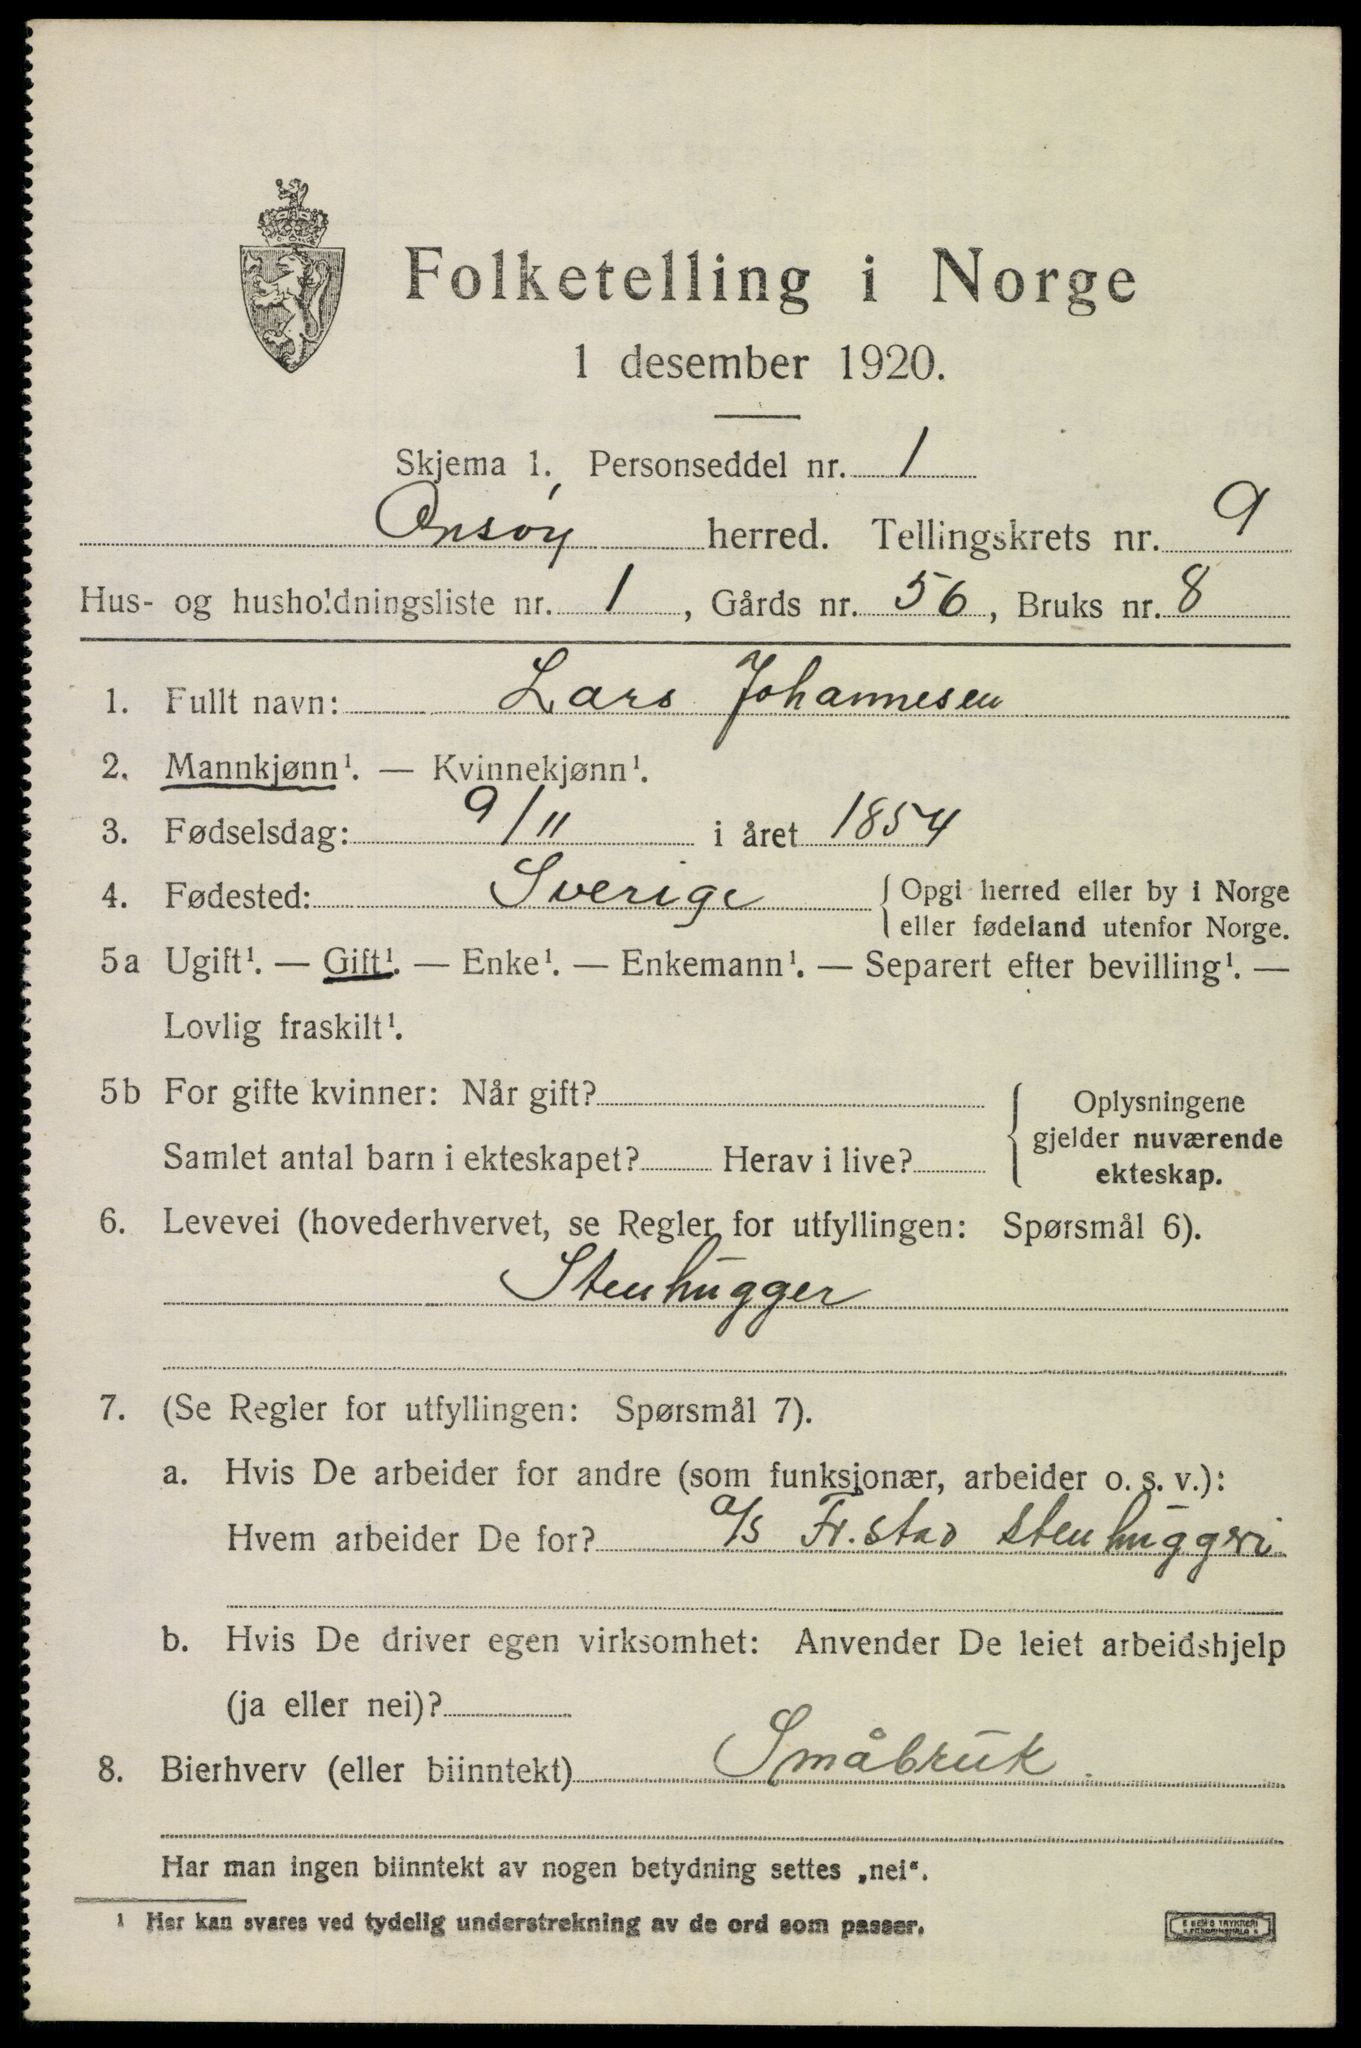 Folketelling i Norge
1 desember 1920.
Skjema 1. Personseddel nr. 1
Onsøy herred. Tellingskrets nr. 9
Hus- og husholdningsliste nr. 1, Gårds nr. 56, Bruks nr. 8
1. Fullt navn: Lars Johannesen
2. Mannkjønn¹. — Kvinnekjønn¹.
3. Fødselsdag: 9/11 i året 1854
4. Fødested: Sverige { Opgi herred eller by i Norge
eller fødeland utenfor Norge.
5a Ugift¹. — Gift¹. — Enke¹. — Enkemann¹. — Separert efter bevilling¹. —
Lovlig fraskilt¹.
5b For gifte kvinner: Når gift?
Samlet antal barn i ekteskapet? Herav i live?
{ Oplysningene
gjelder nuværende
ekteskap.
6. Levevei (hovederhvervet, se Regler for utfyllingen: Spørsmål 6).
Stenhugger
7. (Se Regler for utfyllingen: Spørsmål 7).
a. Hvis De arbeider for andre (som funksjonær, arbeider o. s. v.):
Hvem arbeider De for? a/s Fr.stad stenhuggeri
b. Hvis De driver egen virksomhet: Anvender De leiet arbeidshjelp
(ja eller nei)?
8. Bierhverv (eller biinntekt) Småbruk.
Har man ingen biinntekt av nogen betydning settes „nei“.
¹ Her kan svares ved tydelig understrekning av de ord som passer.